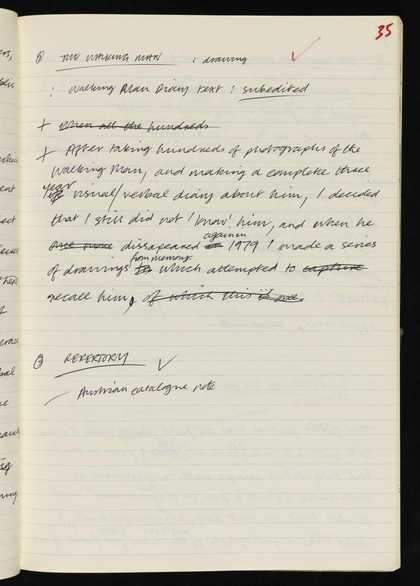 35
① THE WALKING MAN : drawing ✓
: Walking Man Diary text : subedited
+ When all the hundreds
+ After taking hundreds of photographs of the
Walking Man, and making a complete three
year visual/verbal diary about him, I decided
that I still did not 'know' him, and when he
once more dissapeared in again in 1979 I made a series
of drawings from memory which attempted to capture
recall him, of which this is one.
② REPERTORY ✓
Austrian catalogue note